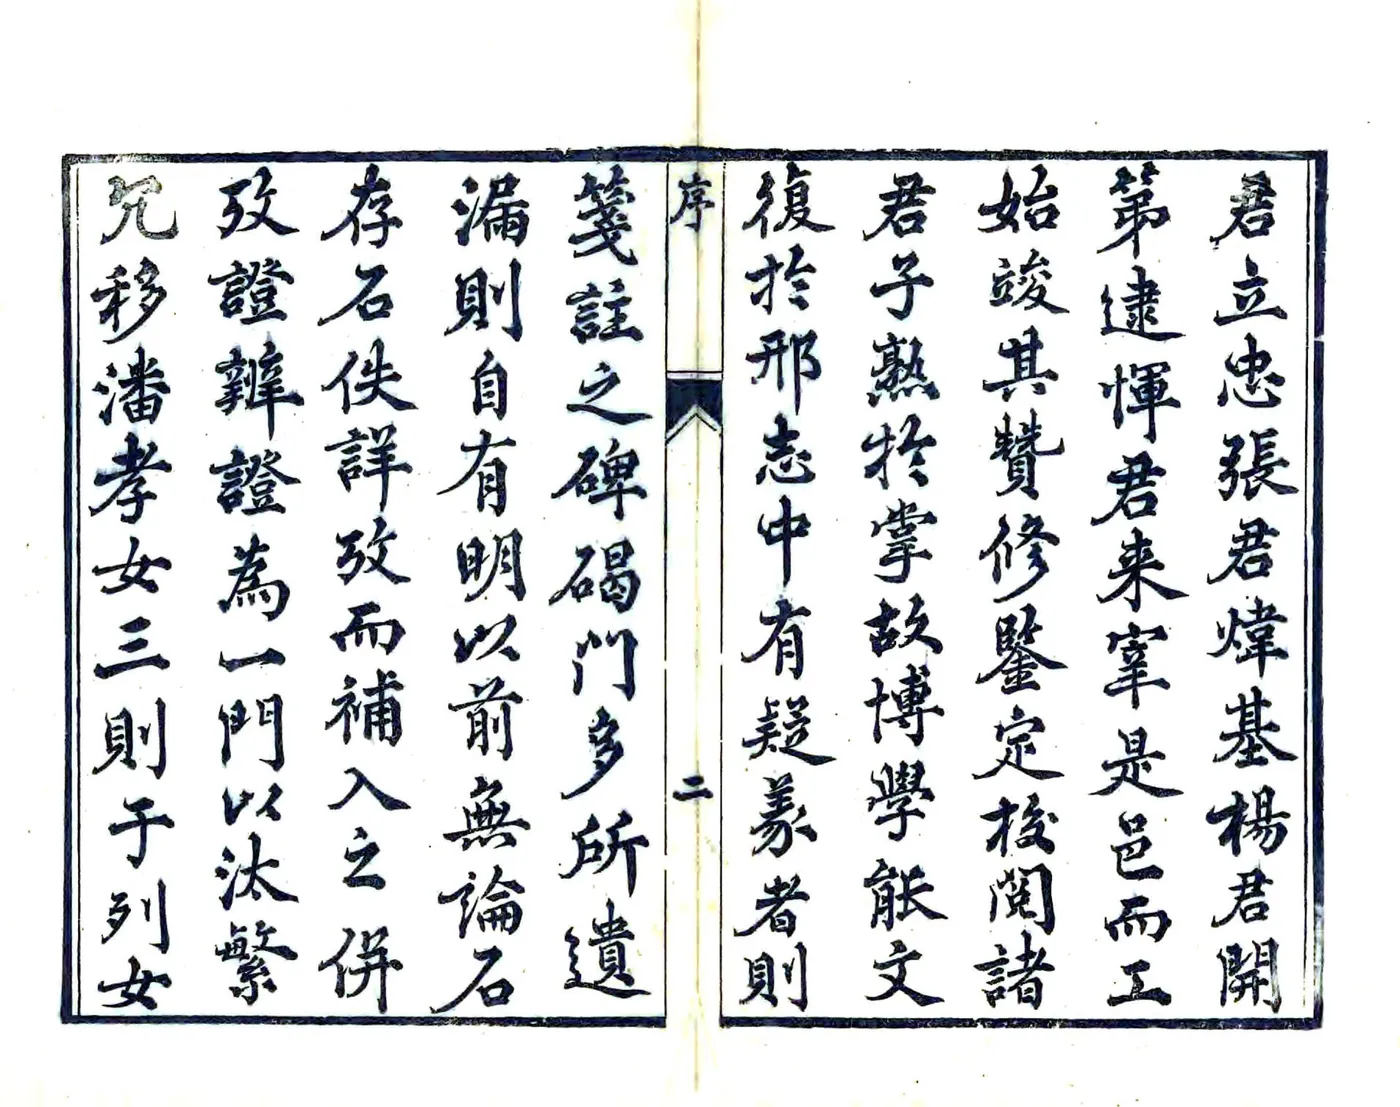 君立忠張君煒基楊君開
第逮惲君来宰是邑而工
始竣其贊修鑒定校閱諸
君子熟於掌故博學能文
復於邢志中有疑義者則
序
二
箋註之碑碣門多所遺
漏則自有明以前無論石
存石佚詳攷而補入之併
攷證辨證為一門以汰繁
冗移潘孝女三則于列女